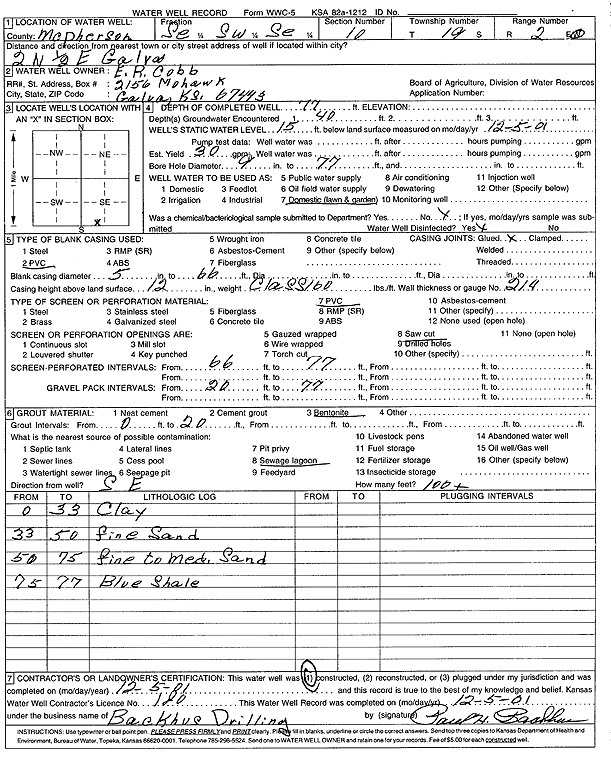 WATER WELL RECORD Form WWC-5 KSA 82a-1212 ID No.
1 LOCATION OF WATER WELL: Fraction Section Number Township Number Range Number
County: McPherson Se ¼ Sw ¼ Se ¼ 10 T 19 S R 2
Distance and direction from nearest town or city street address of well if located within city?
2 WATER WELL OWNER: E.R. Cobb
RR#, St. Address, Box # : 2156 Mohawk Board of Agriculture, Division of Water Resources
City, State, ZIP Code : Galva, KS. 67443 Application Number:
3 LOCATE WELL'S LOCATION WITH AN "X" IN SECTION BOX: 4 DEPTH OF COMPLETED WELL 77 ELEVATION:
N
NW NE
W E
SW SE
X
S
1 Mile
Depth(s) Groundwater Encountered 1 40 ft. 2. ft. 3. ft.
WELL'S STATIC WATER LEVEL 15 ft. below land surface measured on mo/day/yr 12-5-01
Pump test data: Well water was ft. after hours pumping gpm
Est. Yield 30 gpm: Well water was ft. after hours pumping gpm
Bore Hole Diameter 9 in. to 77 ft., and in. to ft.
WELL WATER TO BE USED AS: 5 Public water supply 8 Air conditioning 11 Injection well
1 Domestic 3 Feedlot 6 Oil field water supply 9 Dewatering 12 Other (Specify below)
2 Irrigation 4 Industrial 7 Domestic (lawn & garden) 10 Monitoring well
Was a chemical/bacteriological sample submitted to Department? Yes No X ; If yes, mo/day/yrs sample was submitted Water Well Disinfected? Yes X No
5 TYPE OF BLANK CASING USED: 5 Wrought iron 8 Concrete tile CASING JOINTS: Glued X Clamped
1 Steel 3 RMP (SR) 6 Asbestos-Cement 9 Other (specify below) Welded
2 PVC 4 ABS 7 Fiberglass Threaded
Blank casing diameter 5 in. to 66 ft., Dia in. to ft., Dia in. to ft.
Casing height above land surface 12 in., weight Class 160 lbs./ft. Wall thickness or gauge No. 214
TYPE OF SCREEN OR PERFORATION MATERIAL: 7 PVC 10 Asbestos-cement
1 Steel 3 Stainless steel 5 Fiberglass 8 RMP (SR) 11 Other (specify)
2 Brass 4 Galvanized steel 6 Concrete tile 9 ABS 12 None used (open hole)
SCREEN OR PERFORATION OPENINGS ARE: 5 Gauzed wrapped 8 Saw cut 11 None (open hole)
1 Continuous slot 3 Mill slot 6 Wire wrapped 9 Drilled holes
2 Louvered shutter 4 Key punched 7 Torch cut 10 Other (specify) ft.
SCREEN-PERFORATED INTERVALS: From 66 ft. to 77 ft., From ft. to ft.
From ft. to ft., From ft. to ft.
GRAVEL PACK INTERVALS: From 20 ft. to 77 ft., From ft. to ft.
From ft. to ft., From ft. to ft.
6 GROUT MATERIAL: 1 Neat cement 2 Cement grout 3 Bentonite 4 Other
Grout Intervals: From 0 ft. to 20 ft., From ft. to ft., From ft. to ft.
What is the nearest source of possible contamination: 10 Livestock pens 14 Abandoned water well
1 Septic tank 4 Lateral lines 7 Pit privy 11 Fuel storage 15 Oil well/Gas well
2 Sewer lines 5 Cess pool 8 Sewage lagoon 12 Fertilizer storage 16 Other (specify below)
3 Watertight sewer lines 6 Seepage pit 9 Feedyard 13 Insecticide storage
Direction from well? S E How many feet? 100+
FROM TO LITHOLOGIC LOG FROM TO PLUGGING INTERVALS
0 33 Clay
33 50 fine Sand
50 75 fine to Med. Sand
75 77 Blue Shale
7 CONTRACTOR'S OR LANDOWNER'S CERTIFICATION: This water well was (1) constructed, (2) reconstructed, or (3) plugged under my jurisdiction and was
completed on (mo/day/year) 12-5-01 and this record is true to the best of my knowledge and belief. Kansas
Water Well Contractor's Licence No. 180 This Water Well Record was completed on (mo/day/yr) 12-5-01
under the business name of Backhus Drilling by (signature) Paul H. Backhus
INSTRUCTIONS: Use typewriter or ball point pen. PLEASE PRESS FIRMLY and PRINT clearly. Please fill in blanks, underline or circle the correct answers. Send top three copies to Kansas Department of Health and
Environment, Bureau of Water, Topeka, Kansas 66620-0001. Telephone 785-296-5524. Send one to WATER WELL OWNER and retain one for your records. Fee of $5.00 for each constructed well.